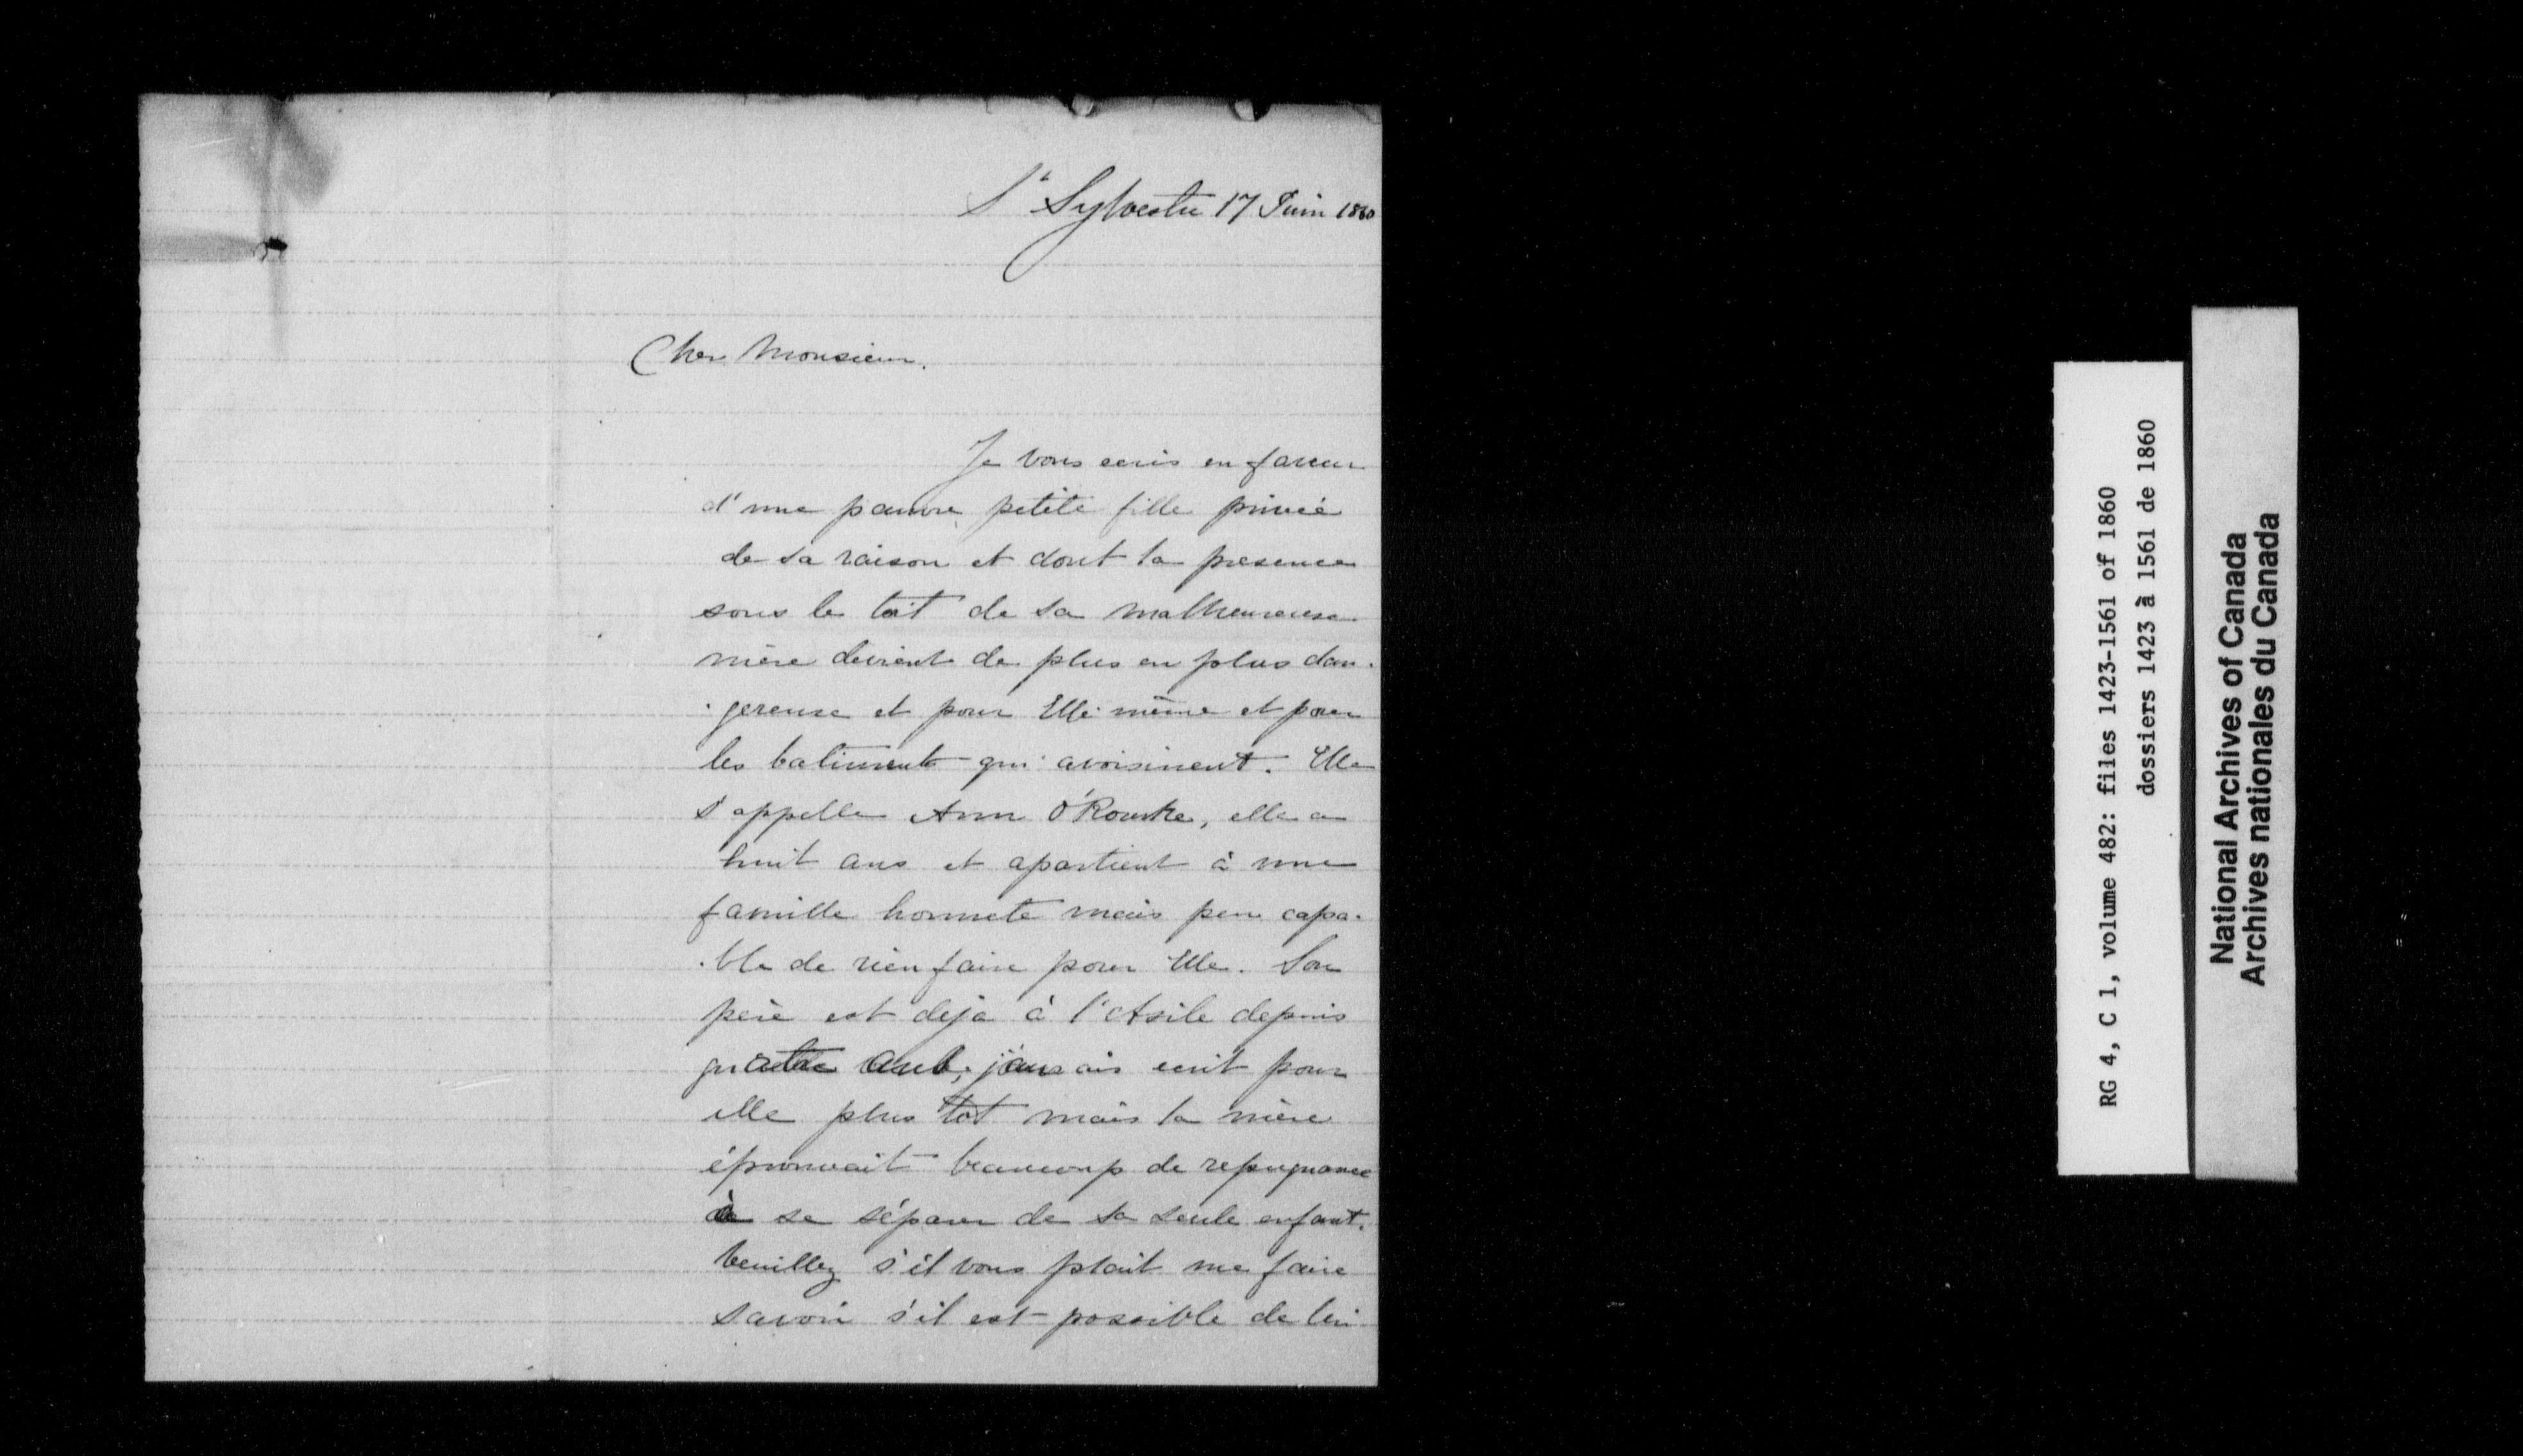 St Sylvestre 17 Juin 1860
Cher Monsieur.
Je vous ecris en faveur
d'une pauvre petite fille privée
de sa raison et dont la presence
sous le toit de sa malheureuse
mère devient de plus en plus dan-
-gereuse et pour Elle-même et pour
les batiments qui avoisinent. Elle
s'appelle Ann O'Rourke, elle a
huit ans et apartient à une
famille honnete mais peu capa-
-ble de rien faire pour Elle. Son
père est deja à l'Asile depuis
quatre ans; j'aurais ecrit pour
elle plus tôt mais la mère
éprouvait beaucoup de repugnance
à se séparer de sa seule enfant.
Veuillez s'il vous plait me faire
savoir s'il est possible de lui
RG 4, C 1, volume 482: files 1423-1561 of 1860
dossiers 1423 à 1561 de 1860
National Archives of Canada
Archives nationales du Canada